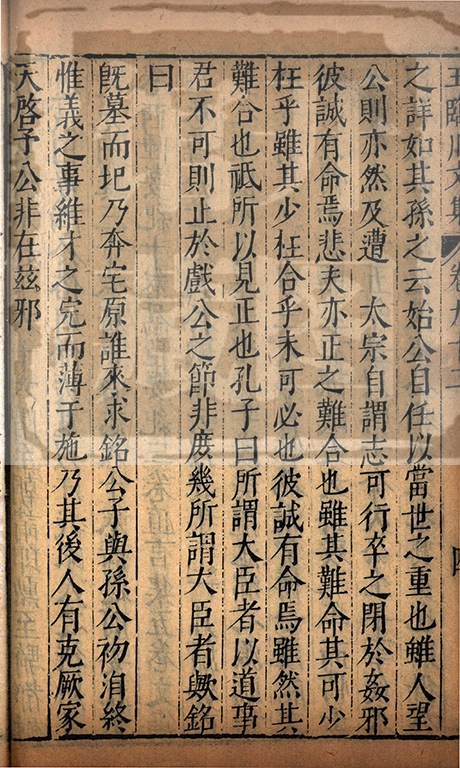 王臨川文集 卷九十二 四
之詳如其孫之云始公自任以當世之重也雖人望
公則亦然及遭 太宗自謂志可行卒之閉於姦邪
彼誠有命焉悲夫亦正之難合也雖其難命其可少
枉乎雖其少枉合乎未可必也彼誠有命焉雖然其
難合也祗所以見正也孔子曰所謂大臣者以道事
君不可則止於戲公之節非庶幾所謂大臣者歟銘
曰
旣墓而圮乃奔宅原誰來求銘公子與孫公初洎終
惟義之事維才之完而薄于施乃其後人有克厥家
天啓予公非在茲邪